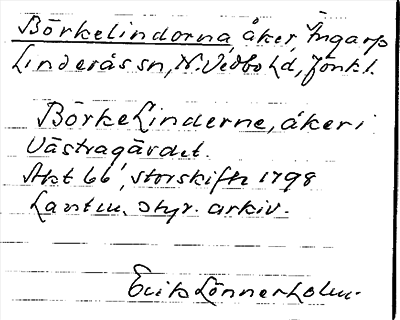 Börkelindorna, åker, Ingarp
Linderås sn, N. Vedbo hd, Jönk l.
Börke Linderne, åker i
Västragärdet.
Akt 66, storskifte 1798
Lantm. styr. arkiv.
Erik Lönnerholm.